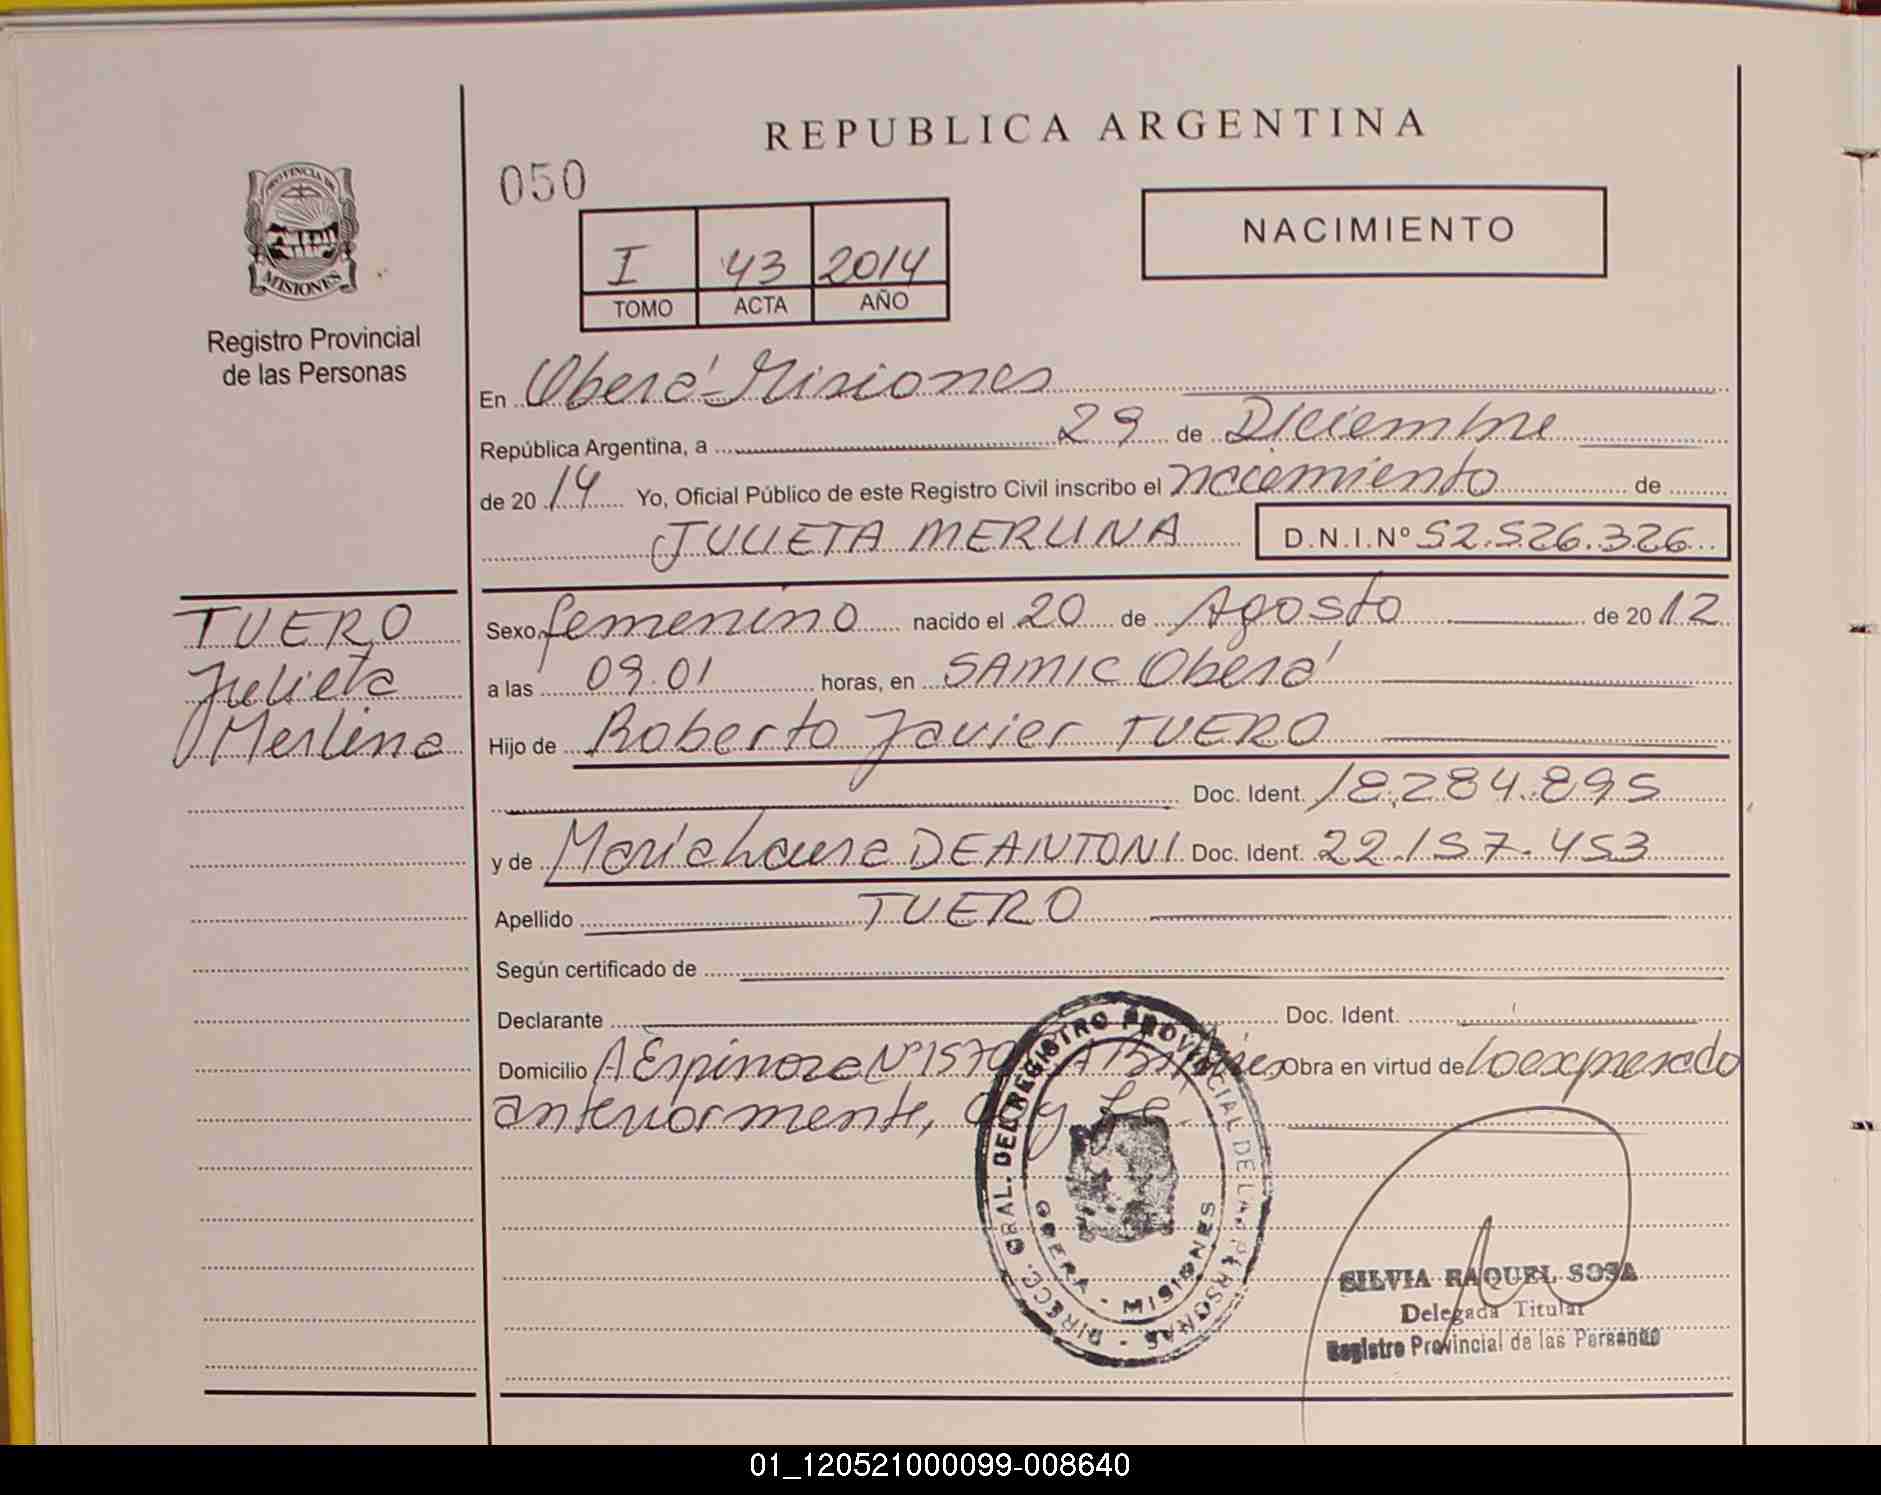 REPUBLICA ARGENTINA
050
NACIMIENTO
I 43 2014
TOMO ACTA AÑO
PROVINCIA DE
MISIONES
Registro Provincial
de las Personas
En Oberá - Misiones
República Argentina, a 29 de Diciembre
de 20 14 Yo, Oficial Público de este Registro Civil inscribo el nacimiento de
JULIETA MERLINA D.N.I.Nº 52.526.326
TUERO
Julieta
Merlina
Sexo femenino nacido el 20 de Agosto de 20 12
a las 09.01 horas, en SAMIC Oberá
Hijo de Roberto Javier TUERO
Doc. Ident. 18.284.895
y de María Laura DEANTONI Doc. Ident. 22.157.453
Apellido TUERO
Según certificado de
Declarante Doc. Ident.
Domicilio A Espinoza Nº 1570 Obra en virtud de lo expresado
anteriormente,
DIRECC. GRAL. DEL REGISTRO PROVINCIAL DE LAS PERSONAS
OBERA - MISIONES
SILVIA RAQUEL SOSA
Delegada Titular
Registro Provincial de las Personas
01_120521000099-008640